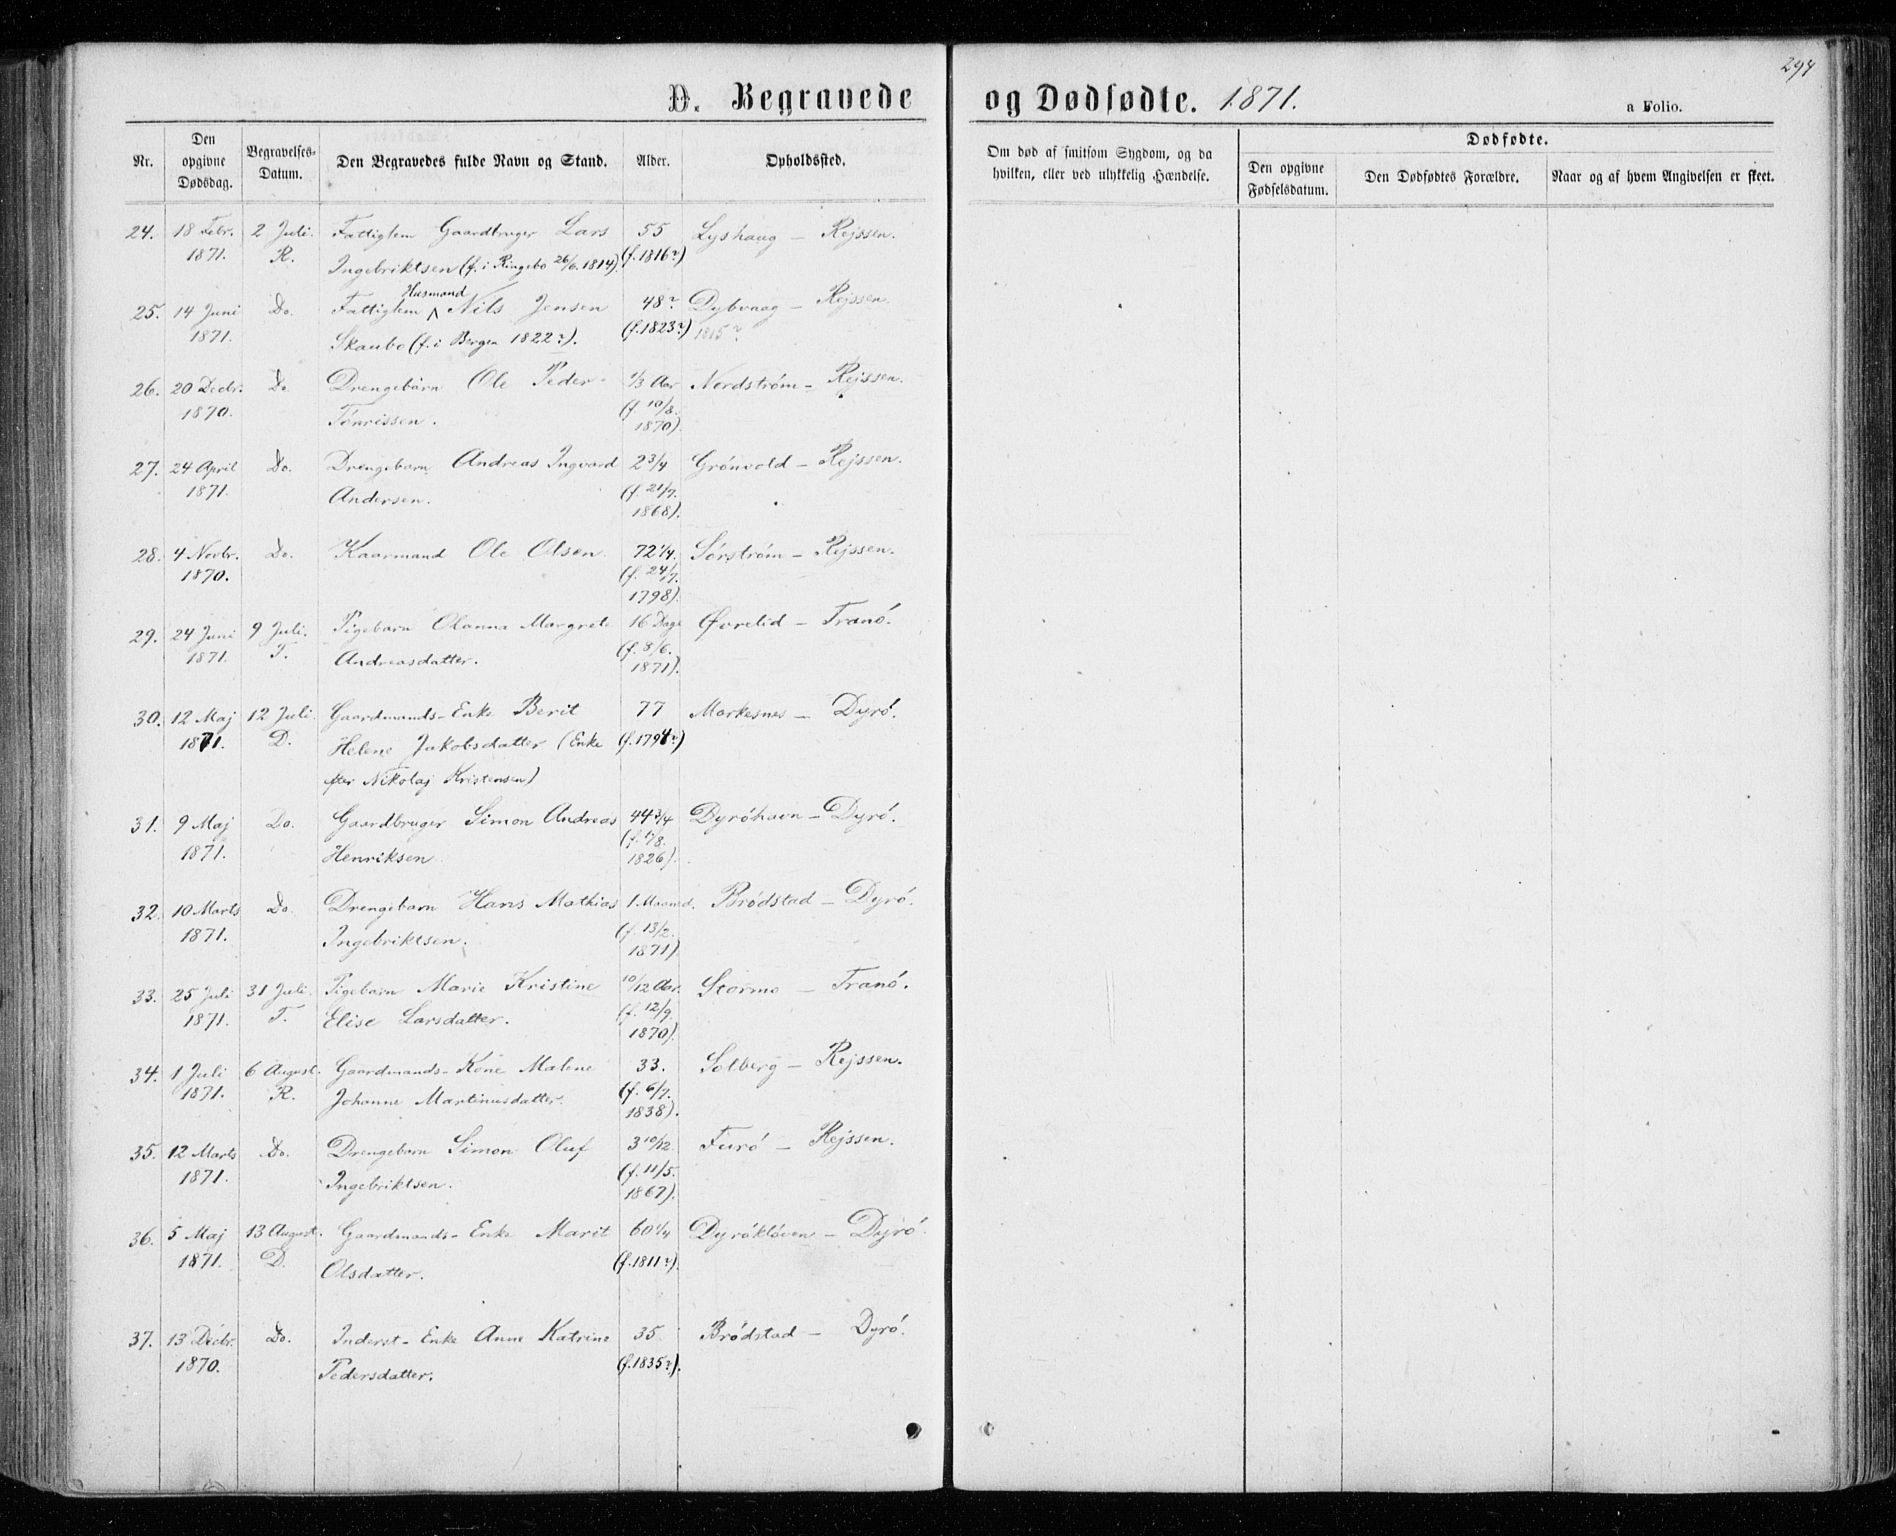 294
D. Begravede og Dødfødte. 1871.
a Folio.
Nr. Den opgivne Dødsdag. Begravelses-Datum. Den Begravedes fulde Navn og Stand. Alder. Opholdssted. Om død af smitsom Sygdom, og da hvilken, eller ved ulykkelig Hændelse. Dødfødte.
Den opgivne Fødselsdatum. Den Dødfødtes Forældre. Naar og af hvem Angivelsen er skeet.
24. 18 Febr. 2 Juli. Fattiglem Gaardbruger Lars 55 Lyshaug – Rejssen.
1871. R. Ingebriktsen (f. i Ringebo 26/6. 1814) (f. 1816?)
Husmand
25. 14 Juni Do. Fattiglem ^ Nils Jensen 48? Dybvaag – Rejssen.
1871. Skaubo (f. i Bergen 1822?). (f. 1823?) 1815?
26. 20 Decbr. Do. Drengebarn Ole Peder 1/3 Aar Nordstrøm – Rejssen.
1870. Tønrissen. (f. 10/8.
1870).
27. 24 April Do. Drengebarn Andreas Ingvard 2 3/4 Grønvold – Rejssen.
1871. Andersen. (f. 21/7.
1868).
28. 4 Novbr. Do. Kaarmand Ole Olsen 72 1/4. Sørstrøm – Rejssen.
1870. (f. 24/7.
1798).
29. 24 Juni 9 Juli. Pigebarn Olanna Margrete 16 Dage Øvrelid – Tranø.
1871. T. Andreasdatter. (f. 8/6.
1871).
30. 12 Maj 12 Juli. Gaardmands-Enke Berit 77 Markesnes – Dyrø.
1871. D. Helene Jakobsdatter (Enke (f. 1794?)
efter Nikolaj Kristensen)
31. 9 Maj Do. Gaardbruger Simon Andreas 44 3/4 Dyrøhavn – Dyrø.
1871. Henriksen (f. 1/8.
1826).
32. 10 Marts Do. Drengebarn Hans Mathias 1 Maaned. Brødstad – Dyrø.
1871. Ingebriktsen. (f. 13/2.
1871)
33. 25 Juli 31 Juli. Pigebarn Marie Kristine 10/12 Aar. Stormo – Tranø.
1871. T. Elise Larsdatter. (f. 12/9.
1870)
34. 1 Juli 6 August. Gaardmands-Kone Malene 33. Solberg – Rejssen.
1871. R. Johanne Martinusdatter. (f. 6/7.
1838).
35. 12 Marts Do. Drengebarn Simon Oluf 3 10/12. Furø – Rejssen.
1871. Ingebriktsen. (f. 11/5.
1867).
36. 5 Maj 13 August. Gaardmands-Enke Marit 60 1/4 Dyrøkløven – Dyrø.
1871. D. Olsdatter. (f. 1811?).
37. 13 Decbr. Do. Inderst-Enke Anne Katrine 35 Brødstad – Dyrø.
1870. Pedersdatter. (f. 1835?).